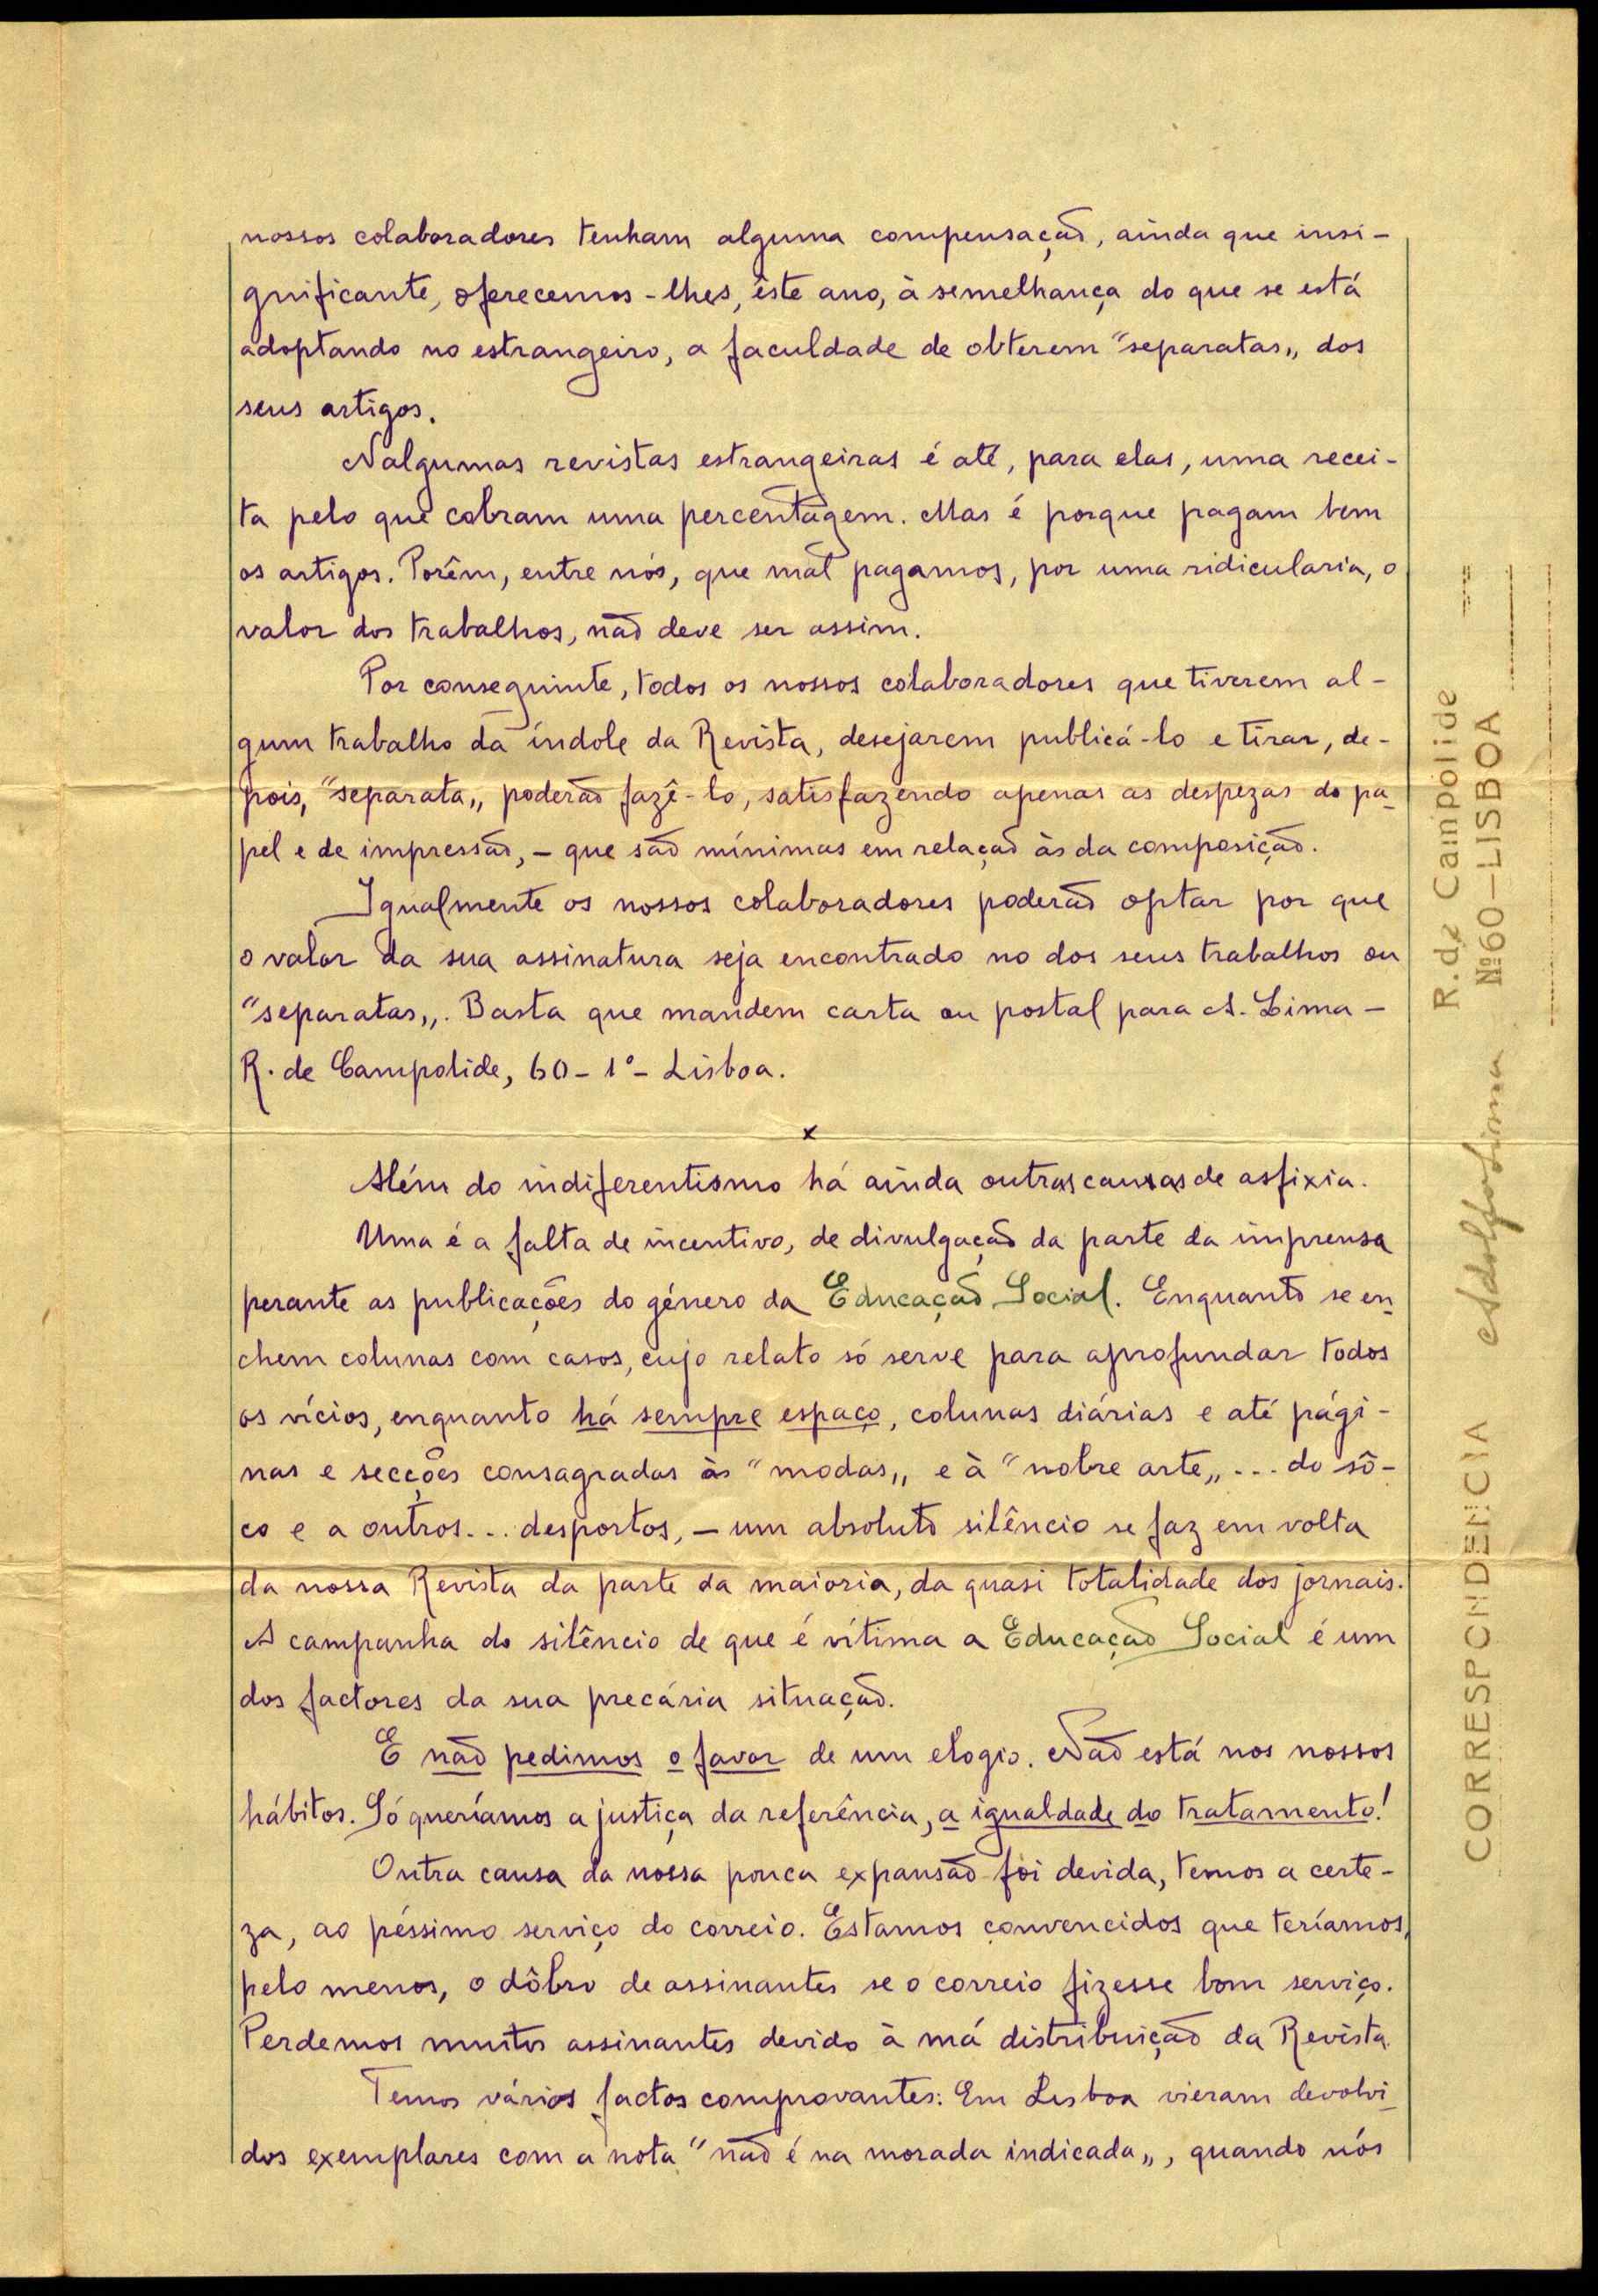 nossos colaboradores tenham alguma compensação, ainda que insi-
gnificante, oferecemos-lhes, êste ano, à semelhança do que se está
adoptando no estrangeiro, a faculdade de obterem "separatas„ dos
seus artigos.
Nalgumas revistas estrangeiras é até, para elas, uma recei-
ta pelo que cobram uma percentagem. Mas é porque pagam bem
os artigos. Porêm, entre nós, que mal pagamos, por uma ridicularia, o
valor dos trabalhos, não deve ser assim.
Por conseguinte, todos os nossos colaboradores que tiverem al-
gum trabalho da índole da Revista, desejarem publicá-lo e tirar, de-
pois, "separata„ poderão fazê-lo, satisfazendo apenas as despezas do pa-
pel e de impressão, – que são mínimas em relação às da composição.
Igualmente os nossos colaboradores poderão optar por que
o valor da sua assinatura seja encontrado no dos seus trabalhos ou
"separatas„. Basta que mandem carta ou postal para A. Lima –
R. de Campolide, 60 – 1º – Lisboa.
x
Além do indiferentismo há ainda outras causas de asfixia.
Uma é a falta de incentivo, de divulgação da parte da imprensa
perante as publicações do género da Educação Social. Enquanto se en-
chem colunas com casos, cujo relato só serve para aprofundar todos
os vícios, enquanto há sempre espaço, colunas diárias e até pági-
nas e secções consagradas às "modas„ e à "nobre arte„... do sô-
co e a outros... desportos, – um absoluto silêncio se faz em volta
da nossa Revista da parte da maioria, da quasi totalidade dos jornais.
A campanha do silêncio de que é vítima a Educação Social é um
dos factores da sua precária situação.
E não pedimos o favor de um elogio. Não está nos nossos
hábitos. Só queríamos a justiça da referência, a igualdade do tratamento!
Outra causa da nossa pouca expansão foi devida, temos a certe-
za, ao péssimo serviço do correio. Estamos convencidos que teríamos,
pelo menos, o dôbro de assinantes se o correio fizesse bom serviço.
Perdemos muitos assinantes devido à má distribuição da Revista.
Temos vários factos comprovantes: Em Lisboa vieram devolvi-
dos exemplares com a nota "não é na morada indicada„, quando nós
CORRESPONDENCIA Adolfo Lima R. de Campolide
Nº 60–LISBOA